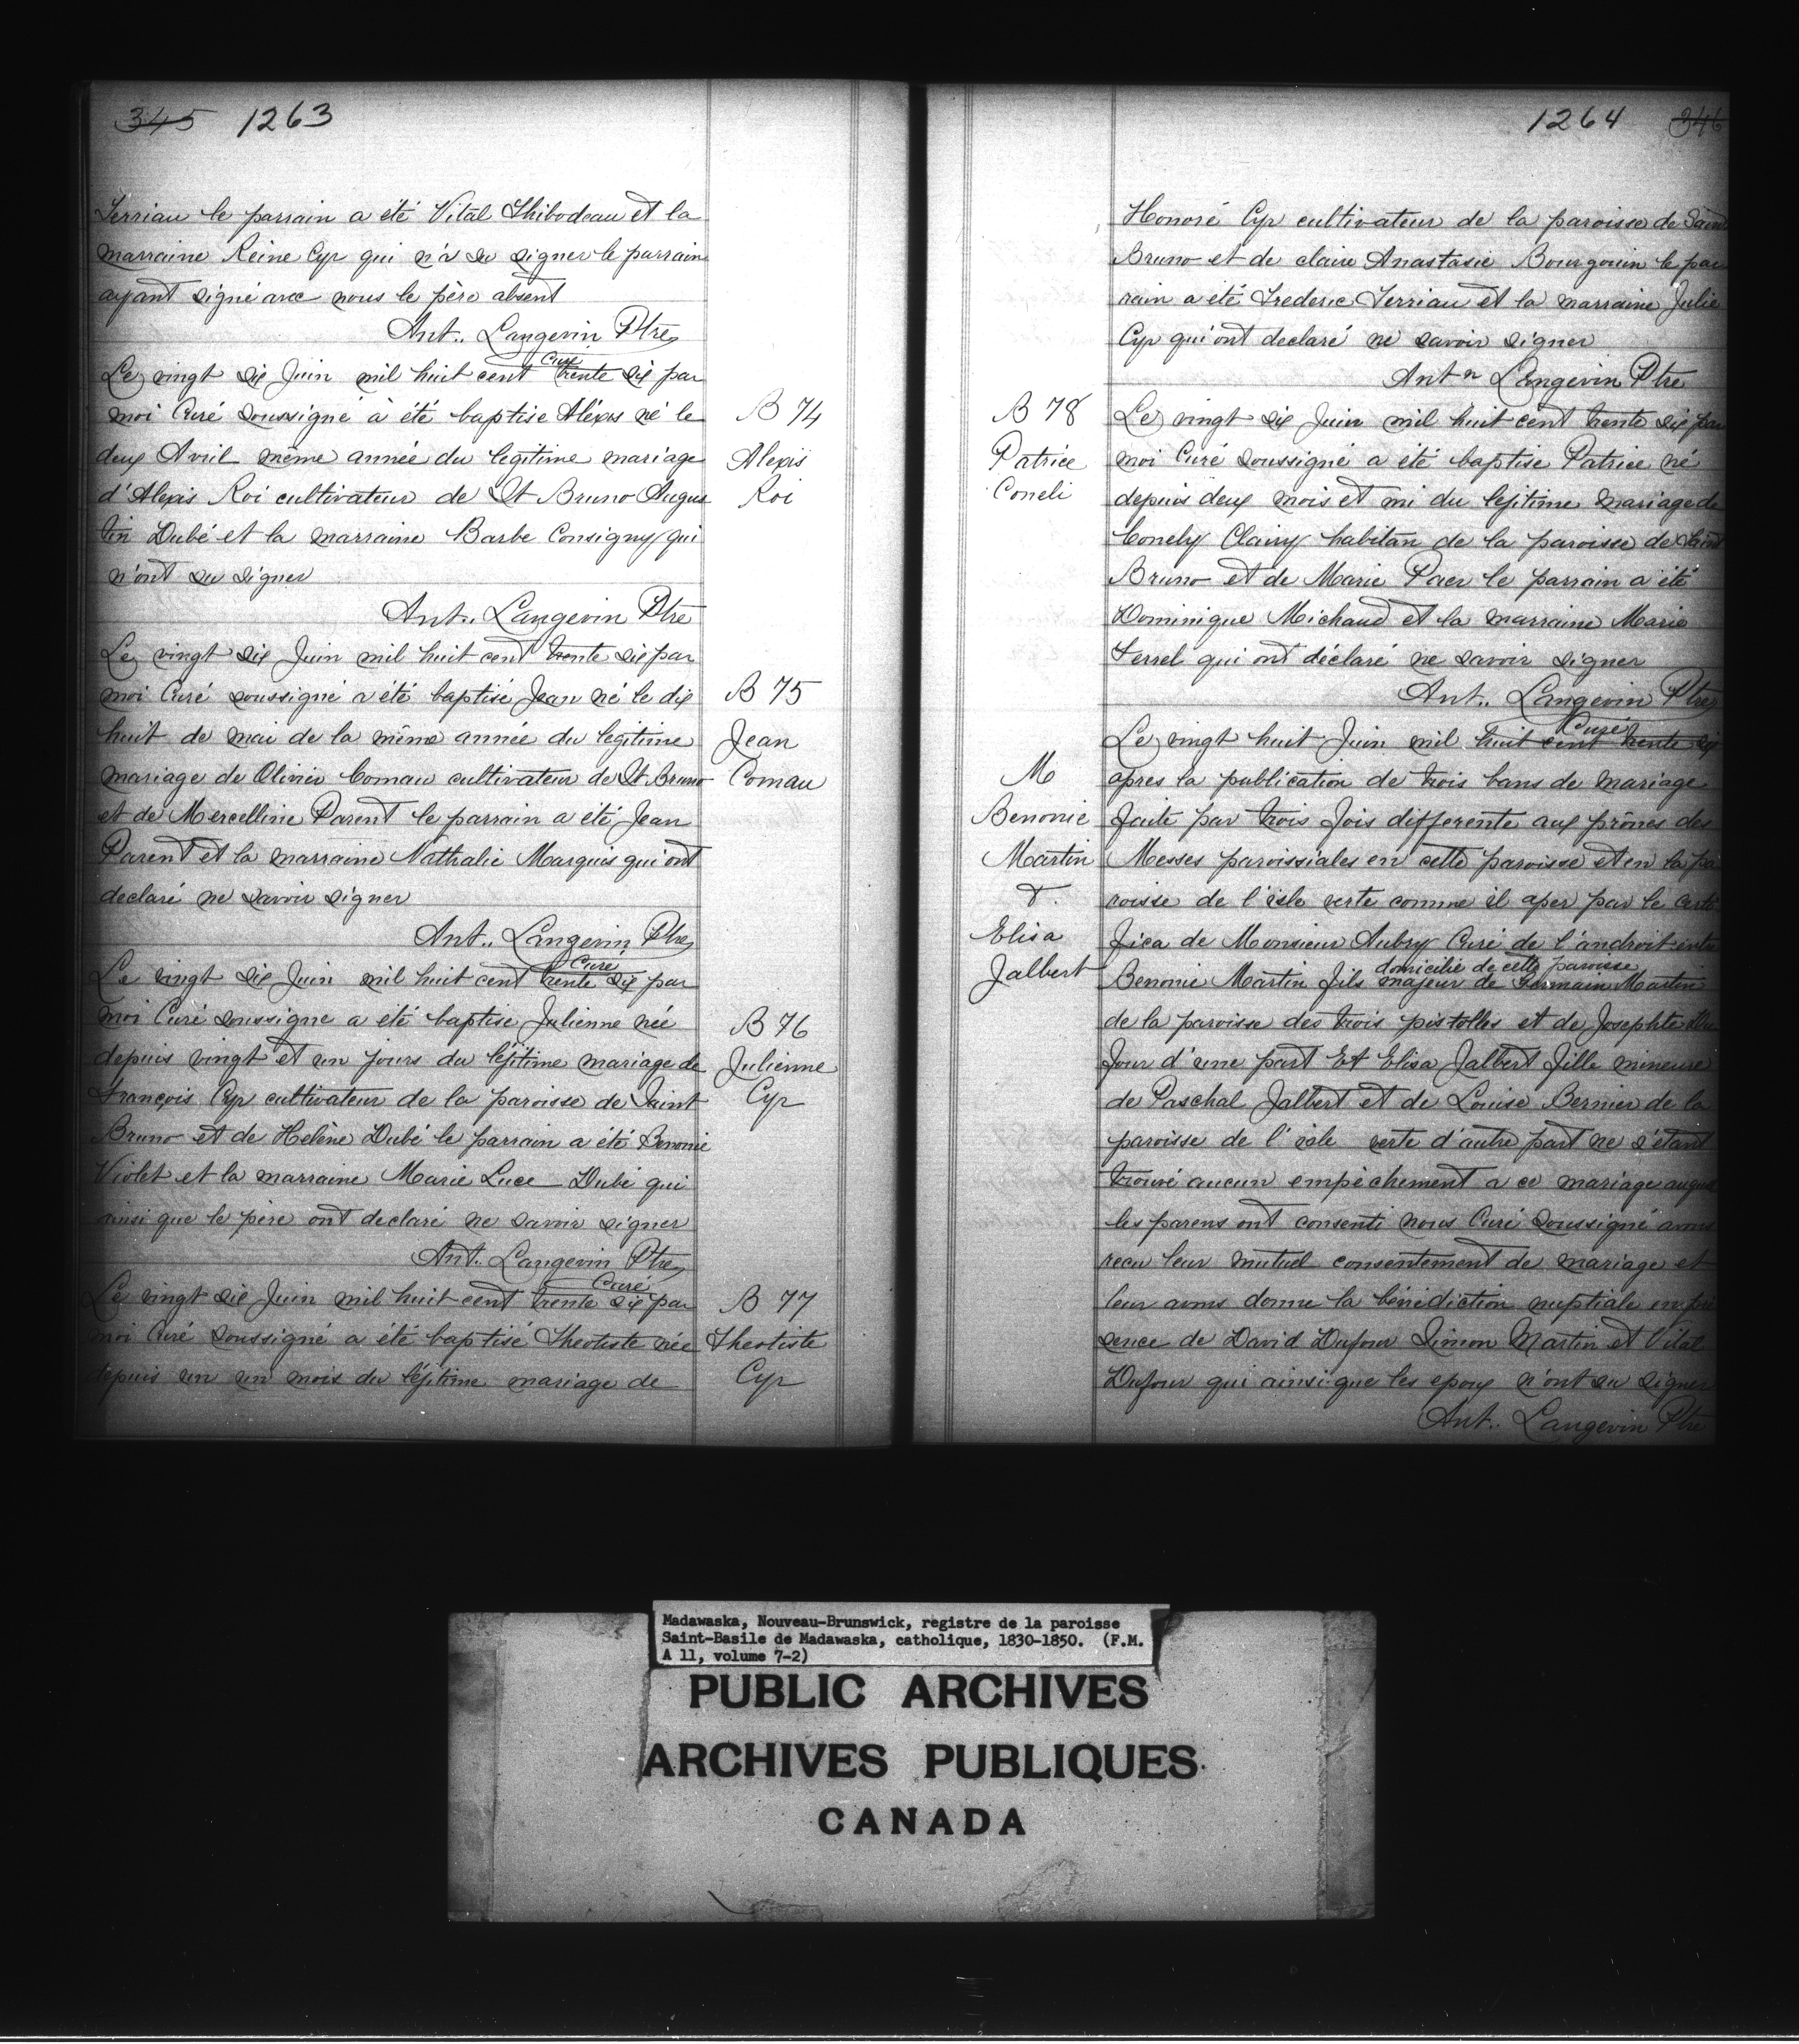 345 1263
Terriau le parrain a été Vital Thibodeau et la
marraine Reine Cyr qui n'a su signer le parrain
ayant signé avec nous le père absent
Ant.. Langevin Ptre
Curé
Le vingt six Juin mil huit cent trente six par
moi Curé soussigné à été baptise Aléxis né le
deux Avril même année du légitime mariage
d'Alexis Roi cultivateur de St Bruno Augus
tin Dubé et la marraine Barbe Consigny qui
n'ont su signer
Ant.. Langevin Ptre
B 74
Alexis
Roi
Le vingt six Juin mil huit cent trente six par
moi Curé soussigné a été baptisé Jean né le dix
huit de mai de la même année du legitime
mariage de Olivier Comau cultivateur de St Bruno
et de Mercelline Parent le parrain a été Jean
Parent et la marraine Nathalie Marquis qui ont
declaré ne savoir signer
Ant.. Langevin Ptre
Curé
B 75
Jean
Comau
Le vingt six Juin mil huit cent trente six par
moi Curé soussigne a été baptise Julienne née
depuis vingt et un jours du léjitime mariage de
François Cyr cultivateur de la paroisse de Saint
Bruno et de Helène Dubé le parrain a été Benonie
Violet et la marraine Marie Luce Dubé qui
ainsi que le père ont declaré ne savoir signer
Ant.. Langevin Ptre
Curé
B 76
Julienne
Cyr
Le vingt six Juin mil huit cent trente six par
moi Curé soussigné a été baptisé Theotiste née
depuis un un mois du léjitime mariage de
B 77
Theotiste
Cyr
1264 346
Honoré Cyr cultivateur de la paroisse de Saint
Bruno et de claire Anastasie Bourgouin le par
rain a été Frederic Terriau et la marraine Julie
Cyr qui ont declaré ne savoir signer
Antn Langevin Ptre
B 78
Patrice
Coneli
Le vingt six Juin mil huit cent trente six par
moi Curé soussigné a été baptise Patrice né
depuis deux mois et mi du lejitime mariage de
Conely Clairy habitan de la paroisse de Saint
Bruno et de Marie Paer le parrain a été
Dominique Michaud et la marraine Marie
Ferrel qui ont déclaré ne savoir signer
Ant.. Langevin Ptre
Curé
M
Benonie
Martin
&.
Elisa
Jalbert
Le vingt huit Juin mil huit cent trente six
apres la publication de trois bans de mariage
faite par trois fois differente aux prônes des
Messes paroissiales en cette paroisse et en la pa
roisse de l'isle verte comme il aper par le certi
fica de Monsieur Aubry Curé de l'androit entre
domicilié de cette paroisse
Benonie Martin fils majeur de Germain Martin
de la paroisse des trois pistolles et de Josephte
Four d'une part Et Elisa Jalbert fille mineure
de Paschal Jalbert et de Louise Bernier de la
paroisse de l'isle verte d'autre part ne s'étant
trouvé aucun empêchement a ce mariage auquel
les parens ont consenti nous Curé soussigné avons
recu leur mutuel consentement de mariage et
leur avons donne la bénédiction nuptiale en pré
sence de David Dufour Simon Martin et Vital
Dufour qui ainsi que les epoux n'ont su signer
Ant.. Langevin Ptre
Madawaska, Nouveau-Brunswick, registre de la paroisse
Saint-Basile de Madawaska, catholique, 1830-1850. (F.M.
A 11, volume 7-2)
PUBLIC ARCHIVES
ARCHIVES PUBLIQUES
CANADA